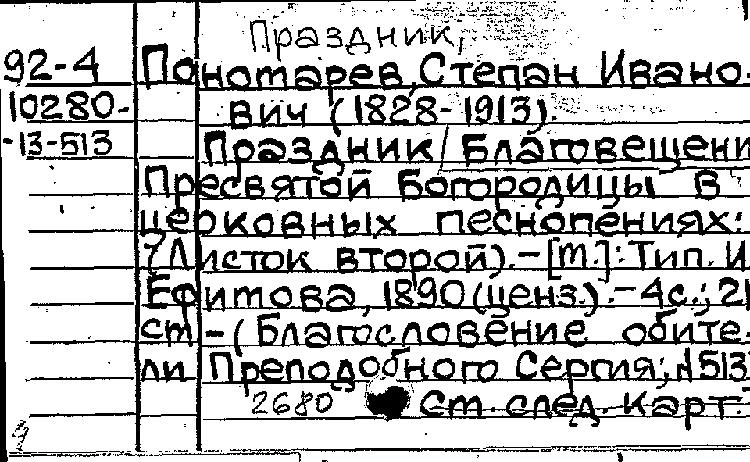 Праздник,
92-4 Пономарев, Степан Ивано-
10280- вич (1828-1913).
-13-513 Праздник Благовещени
Пресвятой Богородицы в
церковных песнопениях:
/Листок второй).-[М.]: Тип. И
Ефимова, 1890 (ценз.).-4с.; 21
см -(Благословение обите-
ли Преподобного Сергия; №513
2680 См. след. карт.